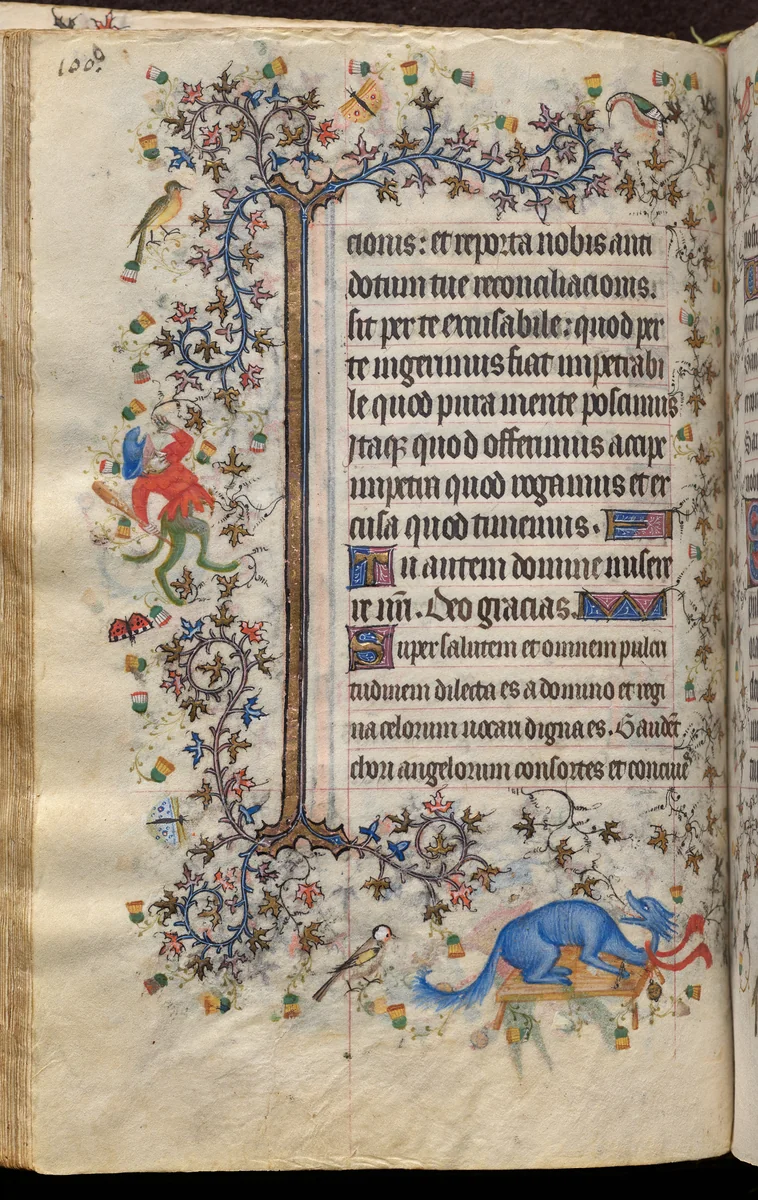 100.
cionis: et reporta nobis anti
dotum tue reconciliacionis.
sit per te excusabile: quod per
te ingerimus fiat impetrabi
le quod pura mente poscimus
Itaqꝫ quod offerimus accipe
impetra quod rogamus et ex
cusa quod timemus.
Tu autem domine misere
re nr̄i. Deo gracias.
Super salutem et omnem pulcri
tudinem dilecta es a domino et regi
na celorum uocari digna es. Gaudēt
chori angelorum consortes et conciues